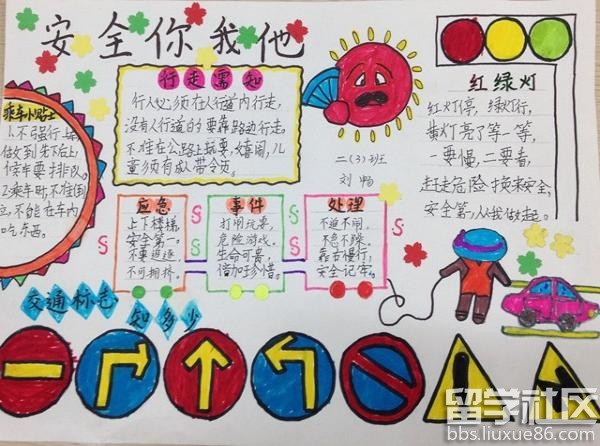 安全你我他
乘车小贴士
1.不强行上车,
做到先下后上,
候车要排队。
2.乘车时不准倒
立,不能在车内
吃东西。
行走需知
行人必须在人行道内行走,
没有人行道的要靠路边行走。
不准在公路上玩耍、嬉闹,儿
童须有成人带令过。
二(3)班
刘畅
红绿灯
红灯停,绿灯行,
黄灯亮了等一等,
一要慢,二要看,
赶走危险换来安全,
安全第一,从我做起。
应急
上下楼梯,
安全第一。
不要追逐
不可拥挤。
事件
打闹玩耍,
危险游戏。
生命可贵,
倍加珍惜。
处理
不追不闹,
不急不躁。
靠右慢行,
安全记牢。
交通标志知多少
留学社区
bbs.liuxue86.com